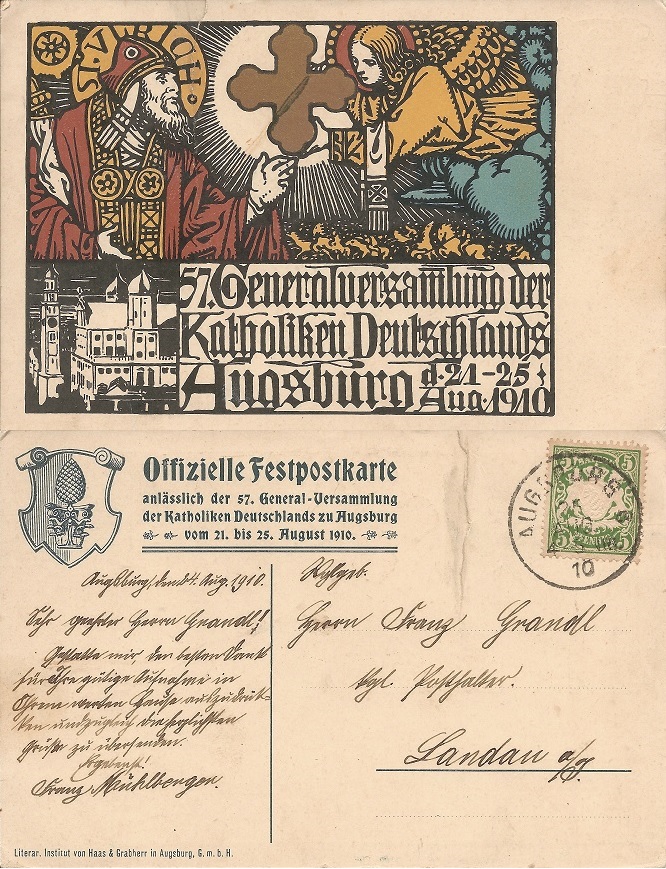 S. VLRICH.
57. Generalversamlung der
Katholiken Deutschlands
Augsburg d. 21-25
Aug. 1910
Offizielle Festpostkarte
anlässlich der 57. General-Versammlung
der Katholiken Deutschlands zu Augsburg
vom 21. bis 25. August 1910.
AUGSBURG
10
5 5
Augsburg, den 4. Aug. 1910.
Sehr geehrter Herrn Grandl!
Gestatte mir, den besten Dank
für Ihre gütige Aufnahme in
Ihrem werten Hause auszudrük-
ken und zugleich die herzlichsten
Grüße zu übersenden.
Ergebenst!
Franz Mühlberger.
Herrn Franz Grandl
kgl. Posthalter.
Landau a/J.
Literar. Institut von Haas & Grabherr in Augsburg, G. m. b. H.